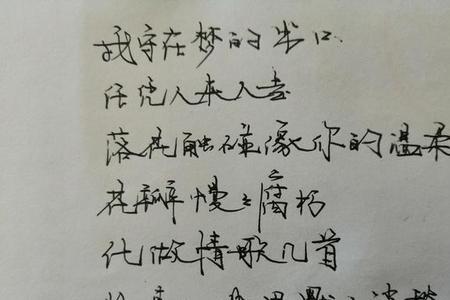 我守在梦的出口
任凭人来人去
落花触碰像你的温柔
花瓣慢慢腐朽
化做情歌几首